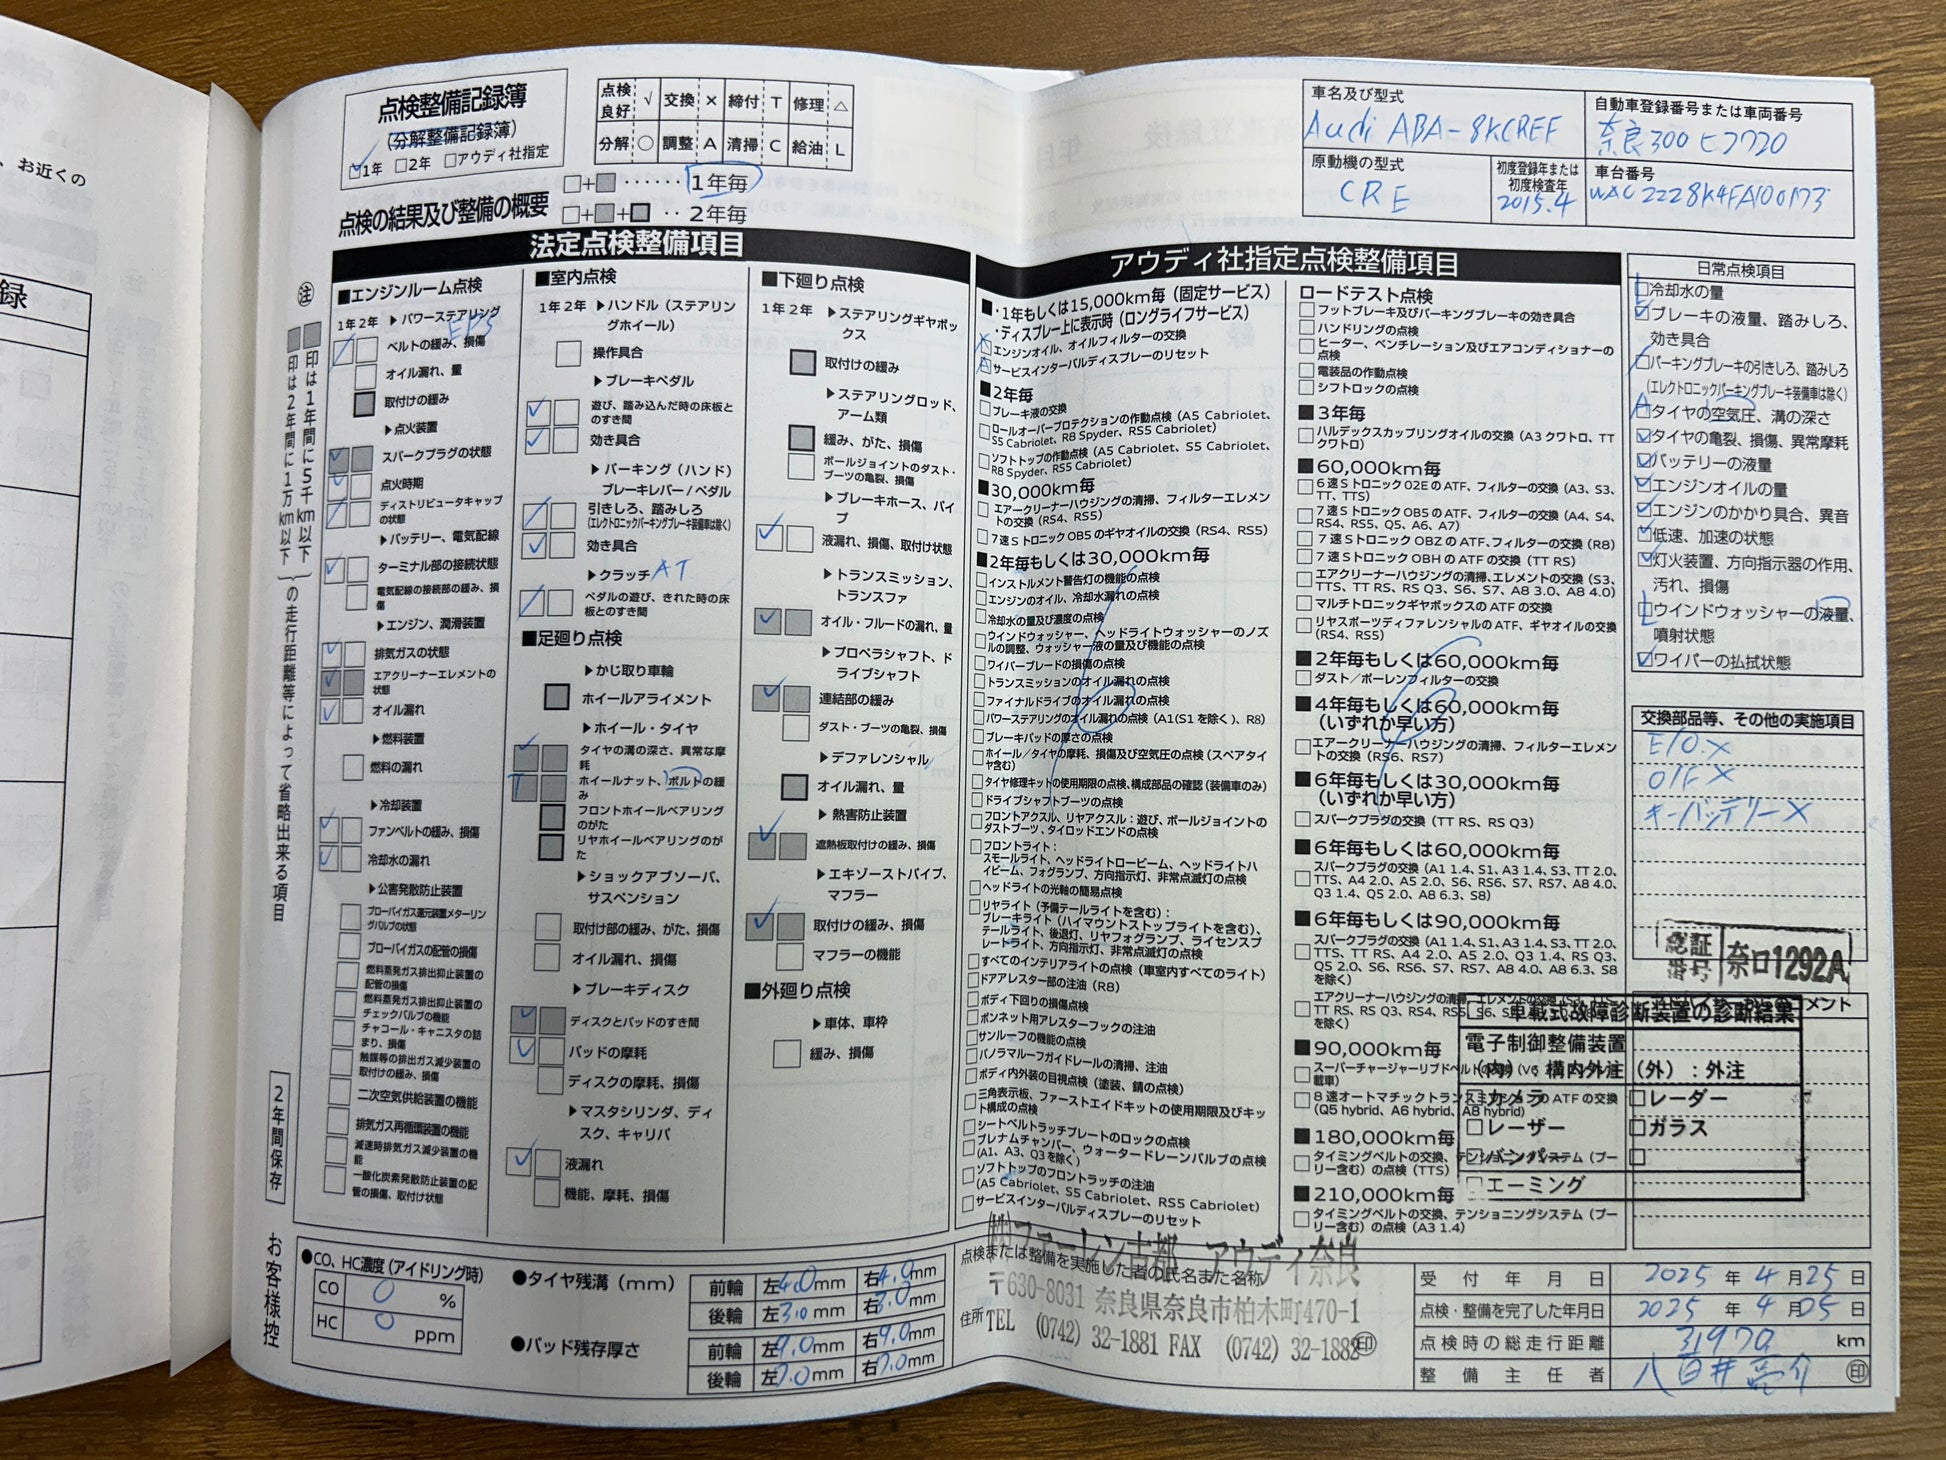 、お近くの
録
点検整備記録簿
(分解整備記録簿)
□1年 □2年 □アウディ社指定
点検良好 √ 交換 × 締付 T 修理 △
分解 ○ 調整 A 清掃 C 給油 L
点検の結果及び整備の概要
□+■ …… 1年毎
□+■+■ ‥ 2年毎
車名及び型式
Audi ABA-8KCREF
自動車登録番号または車両番号
原動機の型式
CRE
初度登録年または初度検査年
2015.4
車台番号
法定点検整備項目
㊟
■印は1年間に5千km以下
■印は2年間に1万km以下
の走行距離等によって省略出来る項目
2年間保存
お客様控
■エンジンルーム点検
1年2年 ▶パワーステアリング
EPS
ベルトの緩み、損傷
オイル漏れ、量
取付けの緩み
▶点火装置
スパークプラグの状態
点火時期
ディストリビュータキャップの状態
▶バッテリー、電気配線
ターミナル部の接続状態
電気配線の接続部の緩み、損傷
▶エンジン、潤滑装置
排気ガスの状態
エアクリーナーエレメントの状態
オイル漏れ
▶燃料装置
燃料の漏れ
▶冷却装置
ファンベルトの緩み、損傷
冷却水の漏れ
▶公害発散防止装置
ブローバイガス還元装置メターリングバルブの状態
ブローバイガスの配管の損傷
燃料蒸発ガス排出抑止装置の配管の損傷
燃料蒸発ガス排出抑止装置のチェックバルブの機能
チャコール・キャニスタの詰まり、損傷
触媒等の排出ガス減少装置の取付けの緩み、損傷
二次空気供給装置の機能
排気ガス再循環装置の機能
減速時排気ガス減少装置の機能
一酸化炭素発散防止装置の配管の損傷、取付け状態
■室内点検
1年2年 ▶ハンドル（ステアリングホイール）
操作具合
▶ブレーキペダル
遊び、踏み込んだ時の床板とのすき間
効き具合
▶パーキング（ハンド）ブレーキレバー/ペダル
引きしろ、踏みしろ
(エレクトロニックパーキングブレーキ装備車は除く)
効き具合
▶クラッチ AT
ペダルの遊び、きれた時の床板とのすき間
■足廻り点検
▶かじ取り車輪
ホイールアライメント
▶ホイール・タイヤ
タイヤの溝の深さ、異常な摩耗
T ホイールナット、ボルトの緩み
フロントホイールベアリングのがた
リヤホイールベアリングのがた
▶ショックアブソーバ、サスペンション
取付け部の緩み、がた、損傷
オイル漏れ、損傷
▶ブレーキディスク
ディスクとパッドのすき間
パッドの摩耗
ディスクの摩耗、損傷
▶マスタシリンダ、ディスク、キャリパ
液漏れ
機能、摩耗、損傷
■下廻り点検
1年2年 ▶ステアリングギヤボックス
取付けの緩み
▶ステアリングロッド、アーム類
緩み、がた、損傷
ボールジョイントのダスト・ブーツの亀裂、損傷
▶ブレーキホース、パイプ
液漏れ、損傷、取付け状態
▶トランスミッション、トランスファ
オイル・フルードの漏れ、量
▶プロペラシャフト、ドライブシャフト
連結部の緩み
ダスト・ブーツの亀裂、損傷
▶デファレンシャル
オイル漏れ、量
▶熱害防止装置
遮熱板取付けの緩み、損傷
▶エキゾーストパイプ、マフラー
取付けの緩み、損傷
マフラーの機能
■外廻り点検
▶車体、車枠
緩み、損傷
アウディ社指定点検整備項目
■・1年もしくは15,000km毎（固定サービス）
・ディスプレー上に表示時（ロングライフサービス）
エンジンオイル、オイルフィルターの交換
サービスインターバルディスプレーのリセット
■2年毎
ブレーキ液の交換
ロールオーバープロテクションの作動点検（A5 Cabriolet、S5 Cabriolet、R8 Spyder、RS5 Cabriolet）
ソフトトップの作動点検（A5 Cabriolet、S5 Cabriolet、R8 Spyder、RS5 Cabriolet）
■30,000km毎
エアークリーナーハウジングの清掃、フィルターエレメントの交換（RS4、RS5）
7速Sトロニック OB5のギヤオイルの交換（RS4、RS5）
■2年毎もしくは30,000km毎
インストルメント警告灯の機能の点検
エンジンのオイル、冷却水漏れの点検
冷却水の量及び濃度の点検
ウインドウォッシャー、ヘッドライトウォッシャーのノズルの調整、ウォッシャー液の量及び機能の点検
ワイパーブレードの損傷の点検
トランスミッションのオイル漏れの点検
ファイナルドライブのオイル漏れの点検
パワーステアリングのオイル漏れの点検（A1(S1を除く)、R8）
ブレーキパッドの厚さの点検
ホイール/タイヤの摩耗、損傷及び空気圧の点検（スペアタイヤ含む）
タイヤ修理キットの使用期限の点検、構成部品の確認（装備車のみ）
ドライブシャフトブーツの点検
フロントアクスル、リヤアクスル：遊び、ボールジョイントのダストブーツ、タイロッドエンドの点検
フロントライト：
スモールライト、ヘッドライトロービーム、ヘッドライトハイビーム、フォグランプ、方向指示灯、非常点滅灯の点検
ヘッドライトの光軸の簡易点検
リヤライト（予備テールライトを含む）：
ブレーキライト（ハイマウントストップライトを含む）、テールライト、後退灯、リヤフォグランプ、ライセンスプレートライト、方向指示灯、非常点滅灯の点検
すべてのインテリアライトの点検（車室内すべてのライト）
ドアアレスター部の注油（R8）
ボディ下回りの損傷点検
ボンネット用アレスターフックの注油
サンルーフの機能の点検
パノラマルーフガイドレールの清掃、注油
ボディ内外装の目視点検（塗装、錆の点検）
三角表示板、ファーストエイドキットの使用期限及びキット構成の点検
シートベルトラッチプレートのロックの点検
プレナムチャンバー、ウォータードレーンバルブの点検（A1、A3、Q3を除く）
ソフトトップのフロントラッチの注油
（A5 Cabriolet、S5 Cabriolet、RS5 Cabriolet）
サービスインターバルディスプレーのリセット
ロードテスト点検
フットブレーキ及びパーキングブレーキの効き具合
ハンドリングの点検
ヒーター、ベンチレーション及びエアコンディショナーの点検
電装品の作動点検
シフトロックの点検
■3年毎
ハルデックスカップリングオイルの交換（A3 クワトロ、TT クワトロ）
■60,000km毎
6速Sトロニック 02EのATF、フィルターの交換（A3、S3、TT、TTS）
7速Sトロニック OB5のATF、フィルターの交換（A4、S4、RS4、RS5、Q5、A6、A7）
7速Sトロニック OBZのATF、フィルターの交換（R8）
7速Sトロニック OBHのATFの交換（TT RS）
エアクリーナーハウジングの清掃、エレメントの交換（S3、TTS、TT RS、RS Q3、S6、S7、A8 3.0、A8 4.0）
マルチトロニックギヤボックスのATFの交換
リヤスポーツディファレンシャルのATF、ギヤオイルの交換（RS4、RS5）
■2年毎もしくは60,000km毎
ダスト／ポーレンフィルターの交換
■4年毎もしくは60,000km毎
（いずれか早い方）
エアークリーナーハウジングの清掃、フィルターエレメントの交換（RS6、RS7）
■6年毎もしくは30,000km毎
（いずれか早い方）
スパークプラグの交換（TT RS、RS Q3）
■6年毎もしくは60,000km毎
スパークプラグの交換（A1 1.4、S1、A3 1.4、S3、TT 2.0、TTS、A4 2.0、A5 2.0、S6、RS6、S7、RS7、A8 4.0、Q3 1.4、Q5 2.0、A8 6.3、S8）
■6年毎もしくは90,000km毎
スパークプラグの交換（A1 1.4、S1、A3 1.4、S3、TT 2.0、TTS、TT RS、A4 2.0、A5 2.0、Q3 1.4、RS Q3、Q5 2.0、S6、RS6、S7、RS7、A8 4.0、A8 6.3、S8を除く）
■90,000km毎
8速オートマチックトランスミッションのATFの交換（Q5 hybrid、A6 hybrid、A8 hybrid）
■180,000km毎
タイミングベルトの交換、テンショニングシステム（プーリー含む）の点検（TTS）
■210,000km毎
タイミングベルトの交換、テンショニングシステム（プーリー含む）の点検（A3 1.4）
日常点検項目
冷却水の量
ブレーキの液量、踏みしろ、効き具合
パーキングブレーキの引きしろ、踏みしろ
（エレクトロニックパーキングブレーキ装備車は除く）
タイヤの空気圧、溝の深さ
タイヤの亀裂、損傷、異常摩耗
バッテリーの液量
エンジンオイルの量
エンジンのかかり具合、異音
低速、加速の状態
灯火装置、方向指示器の作用、汚れ、損傷
ウインドウォッシャーの液量、噴射状態
ワイパーの払拭状態
交換部品等、その他の実施項目
E/O. ×
O/F ×
キーバッテリー ×
認証番号 奈口1292A
車載式故障診断装置の診断結果
電子制御整備装置
（内）：構内外注（外）：外注
□カメラ □レーダー
□レーザー □ガラス
□バンパー □
□エーミング
●CO、HC濃度(アイドリング時)
CO 0 %
HC 0 ppm
●タイヤ残溝（mm）
前輪 左4.0mm 右4.0mm
後輪 左3.0mm 右3.0mm
●パッド残存厚さ
前輪 左9.0mm 右9.0mm
後輪 左7.0mm 右7.0mm
点検または整備を実施した者の氏名また名称
㈱ファーレン古都 アウディ奈良
住所
〒630-8031 奈良県奈良市柏木町470-1
TEL (0742) 32-1881 FAX (0742) 32-1882
㊞
受付年月日 2025年4月25日
点検・整備を完了した年月日 2025年4月25日
点検時の総走行距離 31970 km
整備主任者 ㊞